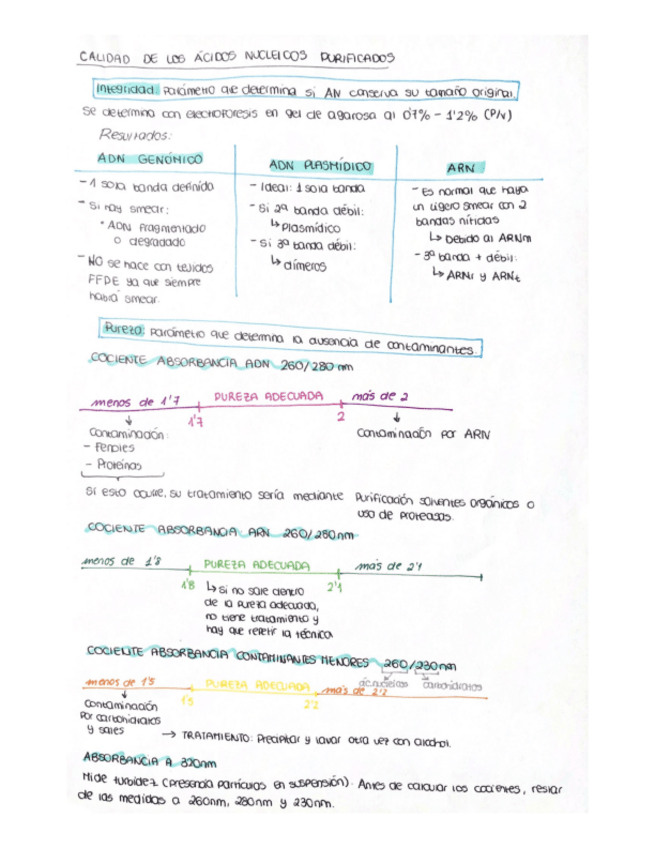 CALIDAD DE LOS ÁCIDOS NUCLEICOS PURIFICADOS
Integridad: Parámetro que determina si AN conserva su tamaño original.
Se determina con electroforesis en gel de agarosa al 0'7% - 1'2% (P/V)
Resultados:
ADN GENÓMICO
- 1 sola banda definida
- Si hay smear:
* ADN fragmentado
o degradado
- NO se hace con tejidos
FFDE ya que siempre
habrá smear.
ADN PLASMÍDICO
- Ideal: 1 sola banda
- Si 2ª banda débil:
↳ Plasmídico
- Si 3ª banda débil:
↳ dímeros
ARN
- Es normal que haya
un ligero smear con 2
bandas nítidas
↳ Debido al ARNm
- 3ª banda + débil:
↳ ARNr y ARNt
Pureza: Parámetro que determina la ausencia de contaminantes.
COCIENTE ABSORBANCIA ADN 260/280 nm
menos de 1'7 PUREZA ADECUADA más de 2
1'7 2
Contaminación:
- Fenoles
- Proteínas
Contaminación por ARN
Si esto ocurre, su tratamiento sería mediante Purificación solventes orgánicos o
uso de proteasas.
COCIENTE ABSORBANCIA ARN 260/280nm
menos de 1'8 PUREZA ADECUADA más de 2'1
1'8 2'1
↳ Si no sale dentro
de la pureza adecuada,
no tiene tratamiento y
hay que repetir la técnica
COCIENTE ABSORBANCIA CONTAMINANTES MENORES 260/230nm
ác. nucleicos carbohidratos
menos de 1'5 PUREZA ADECUADA más de 2'2
1'5 2'2
Contaminación
por carbohidratos
y sales
→ TRATAMIENTO: Precipitar y lavar otra vez con alcohol.
ABSORBANCIA A 320nm
Mide turbidez (presencia partículas en suspensión). Antes de calcular los cocientes, restar
de las medidas a 260nm, 280nm y 230nm.